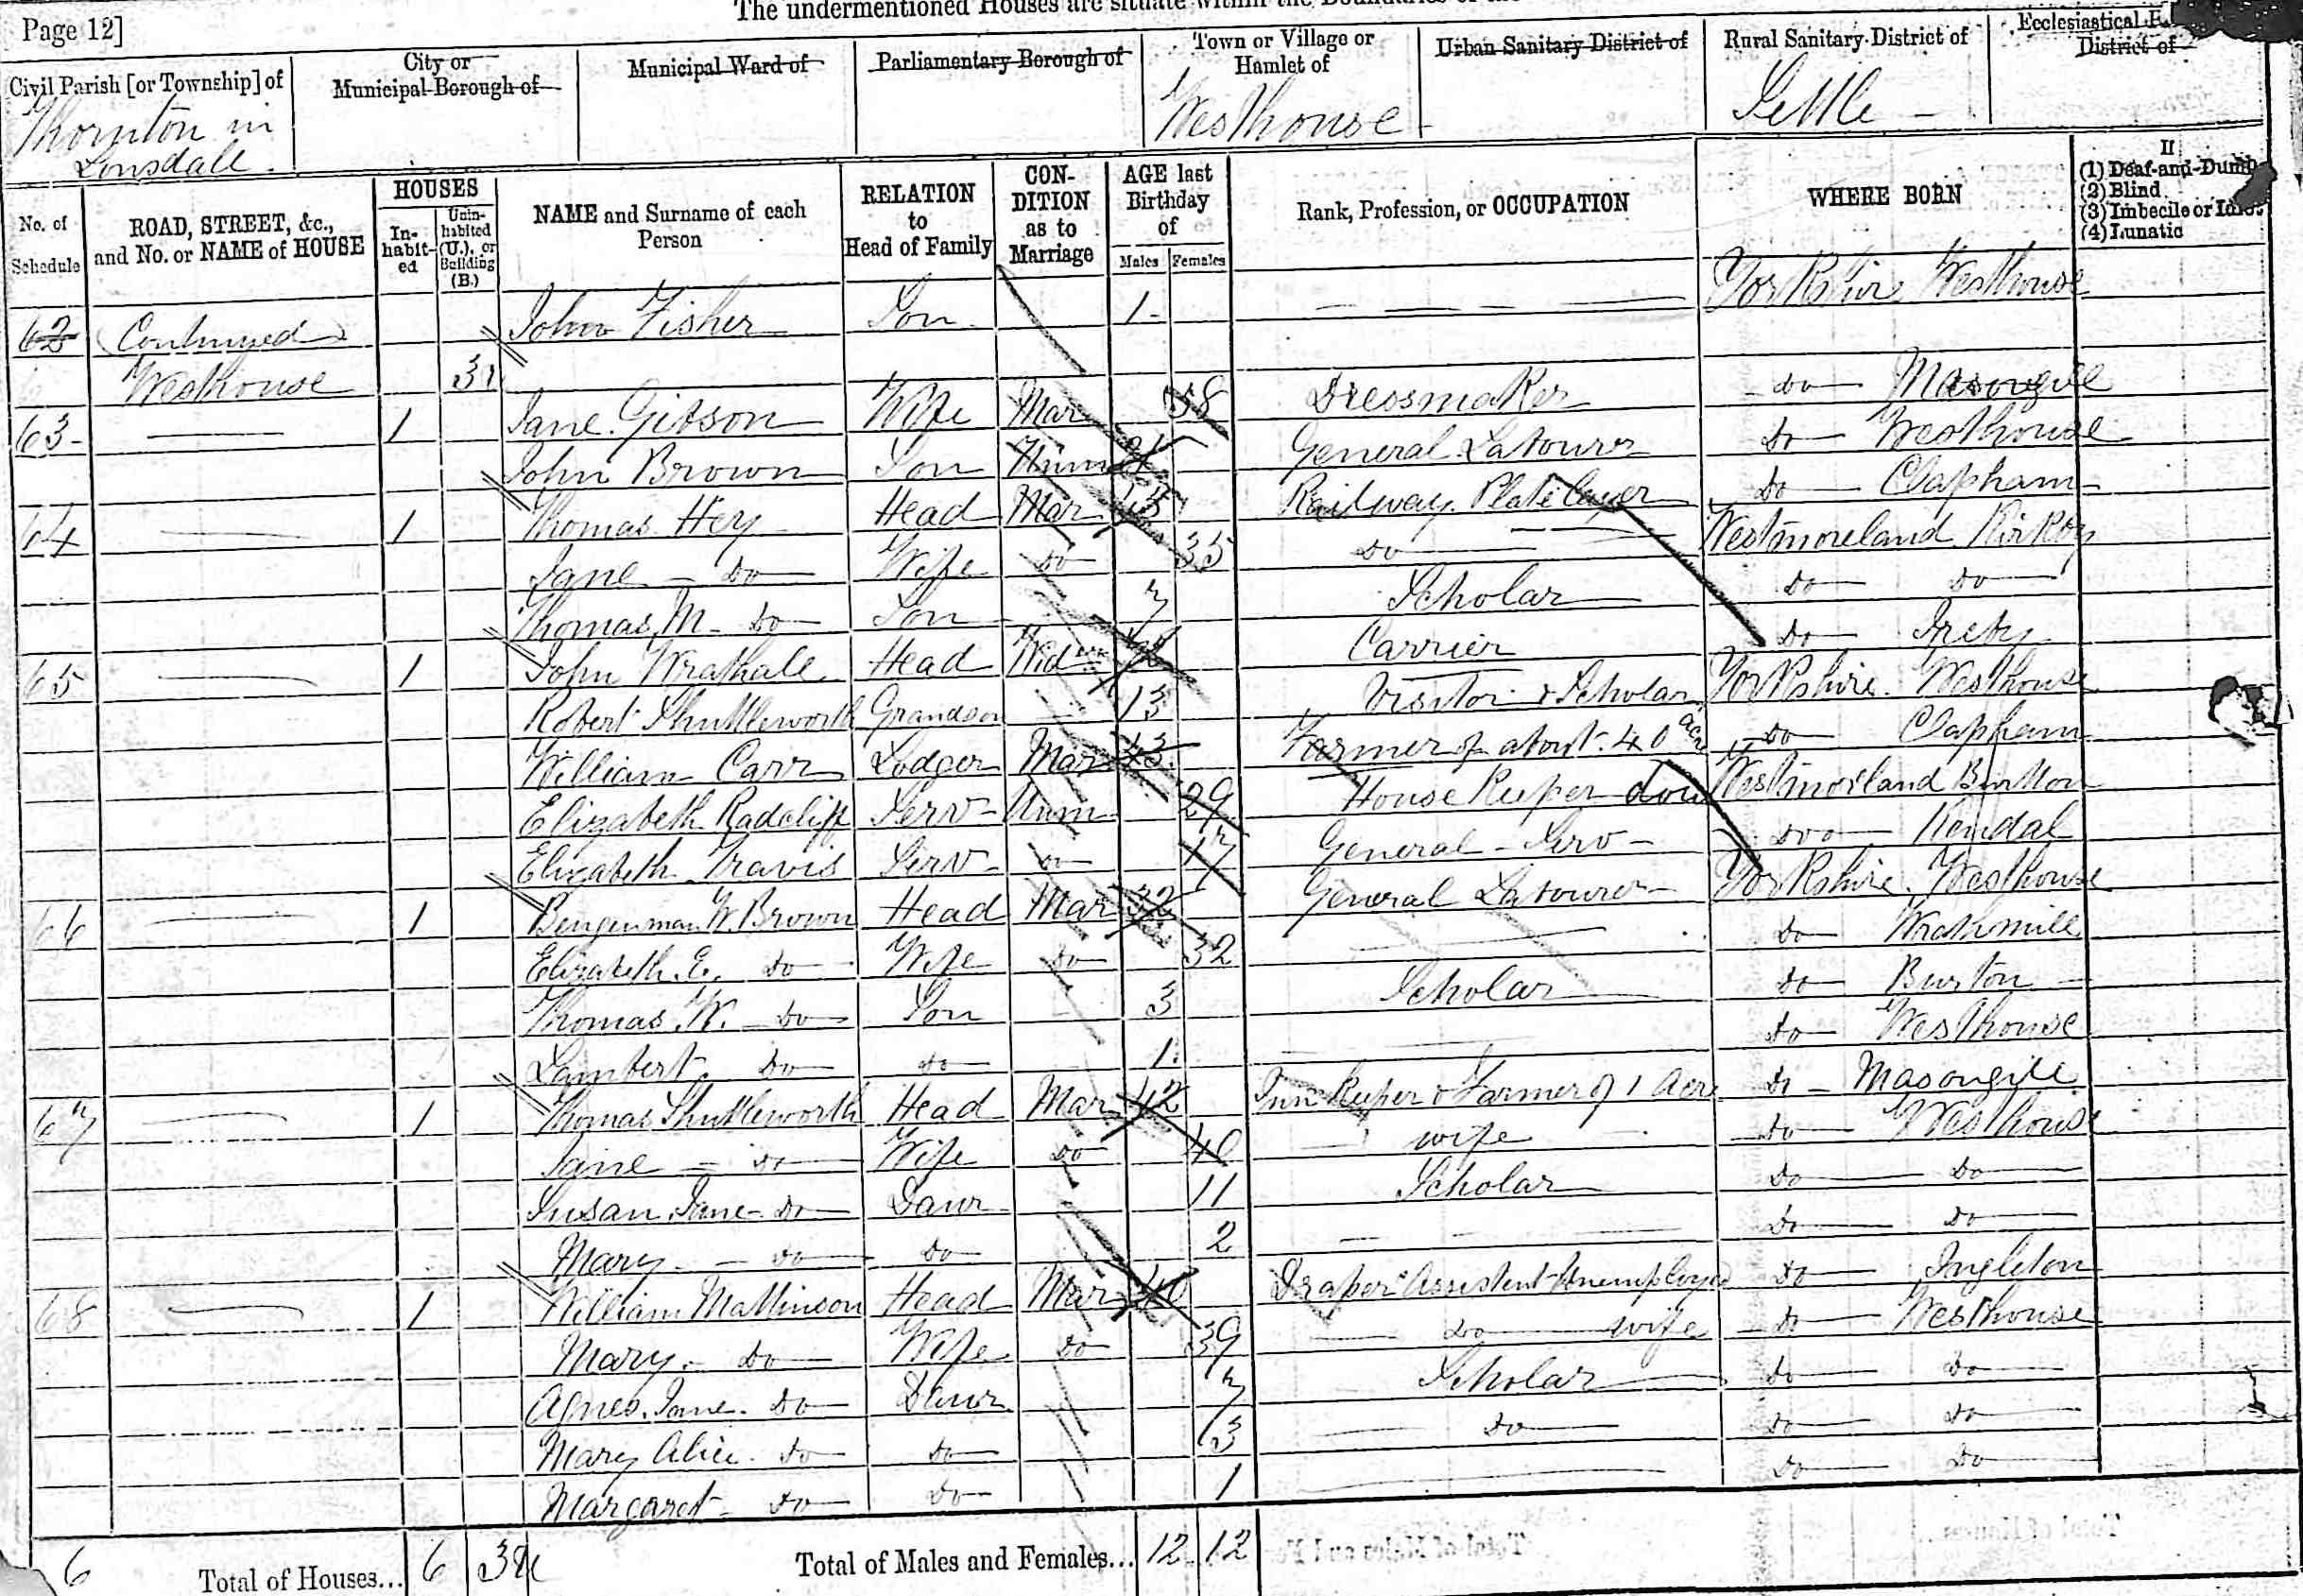 The undermentioned Houses are situate within the Boundaries of the
Page 12]
Civil Parish [or Township] of
Thornton in
Lonsdall
City or
Municipal Borough of
Municipal Ward of
Parliamentary Borough of
Town or Village or
Hamlet of
Westhouse
Urban Sanitary District of
Rural Sanitary District of
Settle
Ecclesiastical
District of
No. of
Schedule
ROAD, STREET, &c.,
and No. or NAME of HOUSE
HOUSES
In-
habit-
ed
Unin-
habited
(U.), or
Building
(B.)
NAME and Surname of each
Person
RELATION
to
Head of Family
CON-
DITION
as to
Marriage
AGE last
Birthday
of
Males Females
Rank, Profession, or OCCUPATION
WHERE BORN
If
(1) Deaf-and-Dumb
(2) Blind
(3) Imbecile or Idiot
(4) Lunatic
62 Continued John Fisher Son 1 Yorkshire Westhouse
Westhouse
63 1 Jane Gibson Wife Mar 58 Dressmaker Do Masongill
John Brown Son Unm General Labourer Do Westhouse
64 1 Thomas Hey Head Mar 43 Railway Platelayer Do Clapham
Jane Do Wife Do 35 Do Westmoreland Kirkby
Thomas M Do Son 7 Scholar Do Do
65 1 John Wrathall Head Widwr Carrier Do Ireby
Robert Shuttleworth Grandson 13 Visitor & Scholar Yorkshire Westhouse
William Carr Lodger Mar 43 Farmer of about 40 acre Do Clapham
Elizabeth Radcliff Serv Unm 29 House Keeper dom Westmorland Burton
Elizabeth Travis Serv Do 17 General Serv Do Kendal
66 1 Bengenman W. Brown Head Mar 32 General Labourer Yorkshire Westhouse
Elizabeth E. Do Wife Do 32 Do Wrathmill
Thomas W. Do Son 3 Scholar Do Burton
Lambert Do Do 1 Do Westhouse
67 1 Thomas Shuttleworth Head Mar 42 Inn Keeper & Farmer of 1 Acre Do Masongill
Jane Do Wife Do 40 wife Do Westhouse
Susan Jane Do Daur 11 Scholar Do Do
Mary Do Do 2 Do Do
68 1 William Mallinson Head Mar 40 Draper Assistent Unemployed Do Ingleton
Mary Do Wife Do 39 Do wife Do Westhouse
Agnes Jane Do Daur 7 Scholar Do Do
Mary Alice Do Do 3 Do Do Do
Margaret Do Do 1 Do Do
6 Total of Houses... 6 Total of Males and Females... 12 12